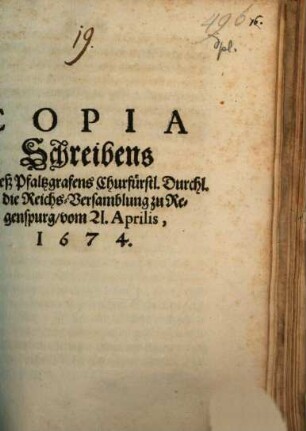 19.
496
16.
dpl.
COPIA
Schreibens
eß Pfaltzgrafens Churfürstl. Durchl.
die Reichs-Versamblung zu Re-
genspurg/vom 21. Aprilis,
1674.